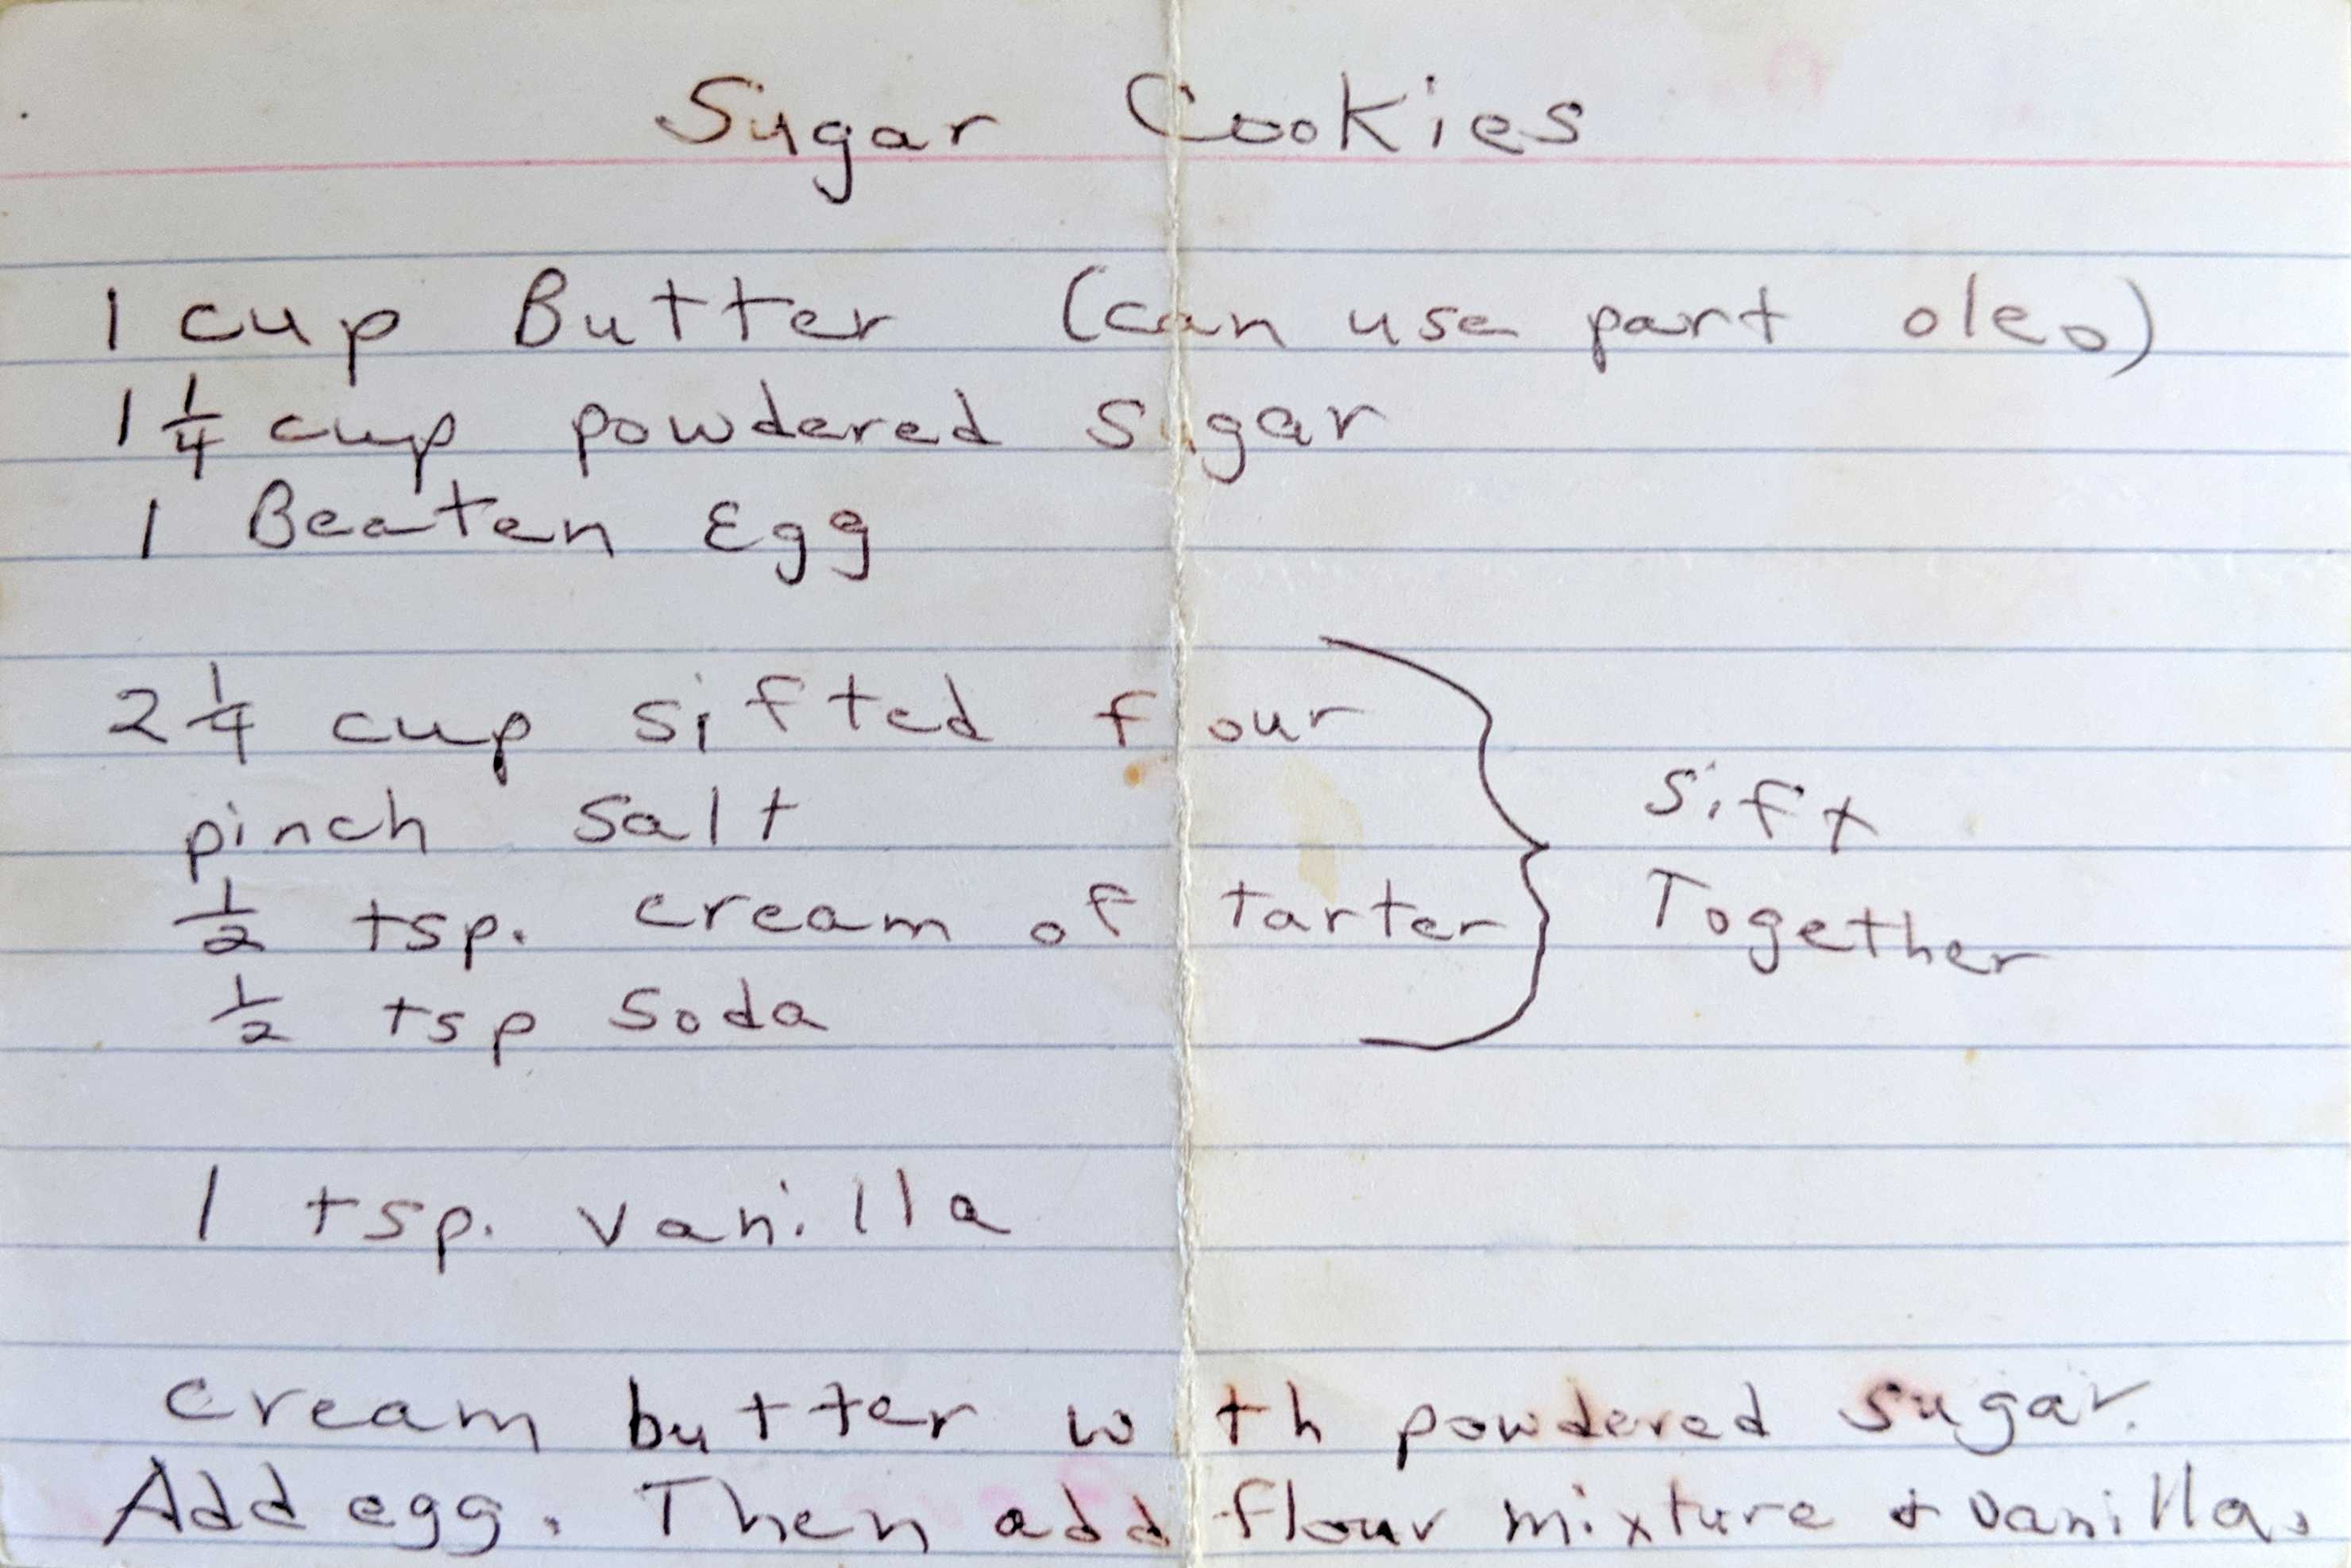 Sugar Cookies
1 cup Butter (can use part oleo)
1 1/4 cup powdered sugar
1 Beaten Egg
2 1/4 cup sifted flour
pinch salt
1/2 tsp. cream of tarter
1/2 tsp soda
Sift
Together
1 tsp. vanilla
cream butter with powdered sugar.
Add egg. Then add flour mixture + vanilla.